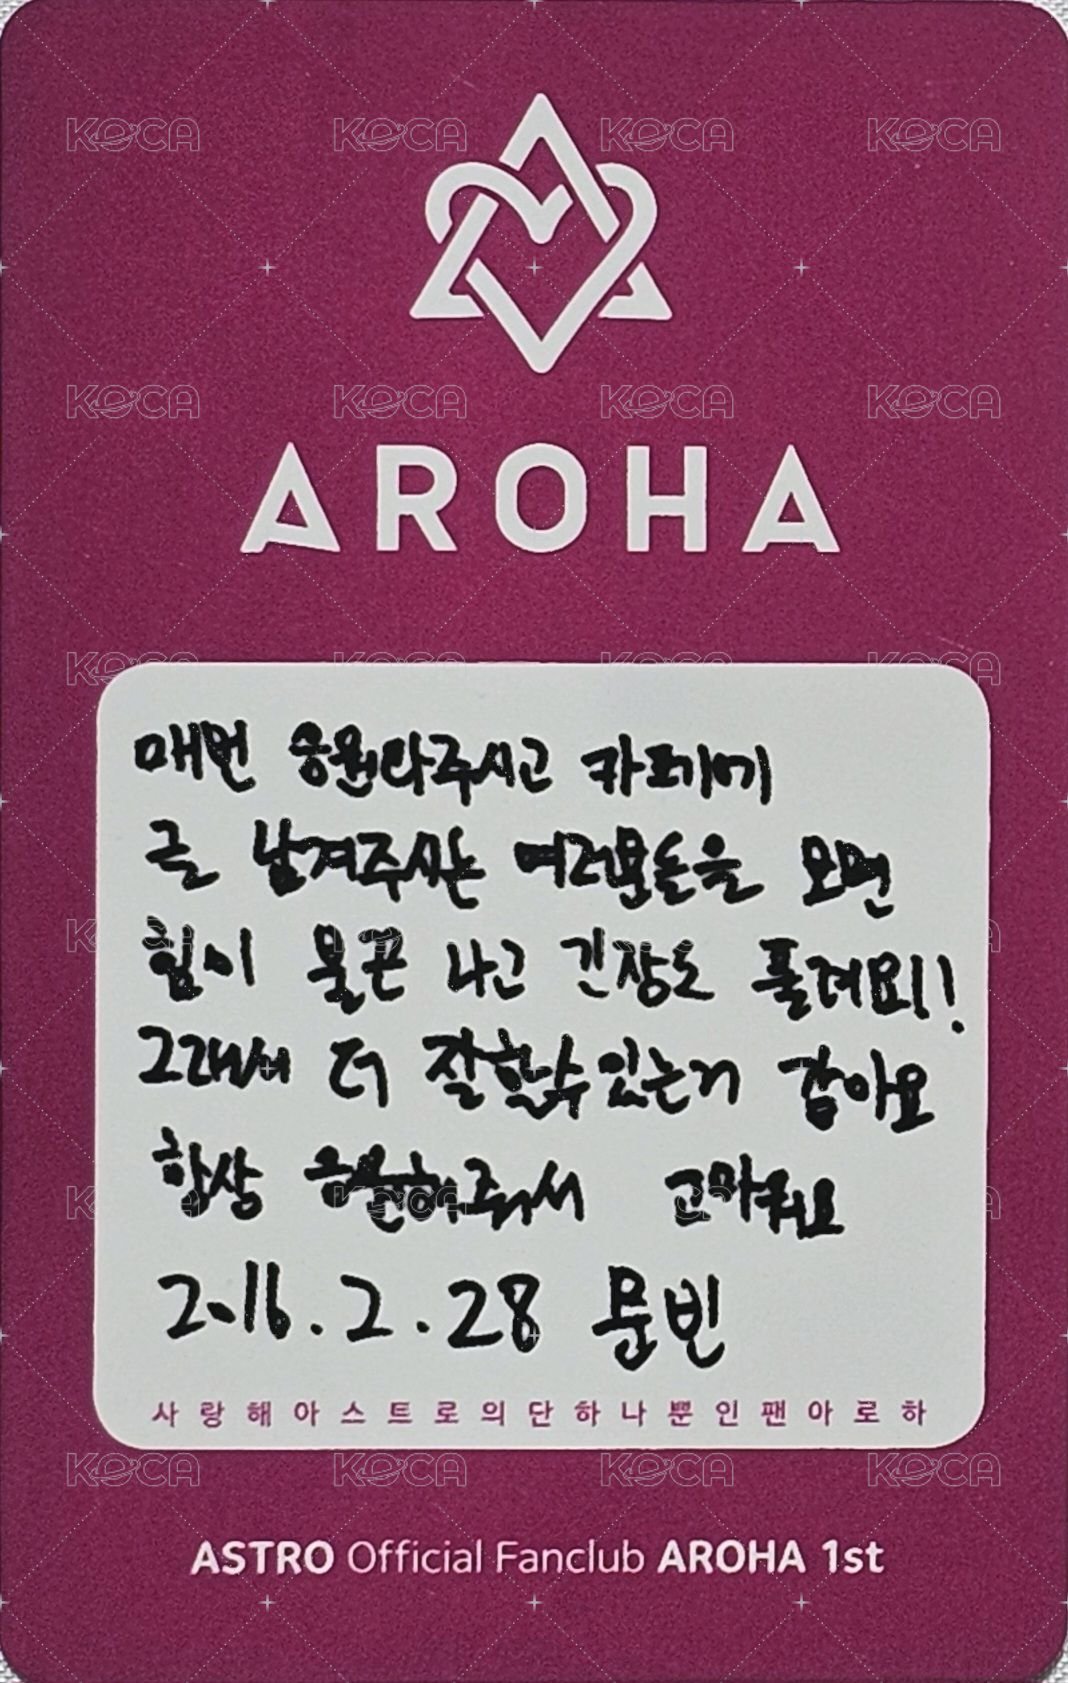 AROHA
매번 응원와주시고 카페에
글 남겨주시는 여러분들을 보면
힘이 불끈 나고 긴장도 풀려요!!
그래서 더 잘할수있는거 같아요
항상 응원해주셔서 고마워요
2016.2.28 문빈
사랑해아스트로의단하나뿐인팬아로하
ASTRO Official Fanclub AROHA 1st
KOCA